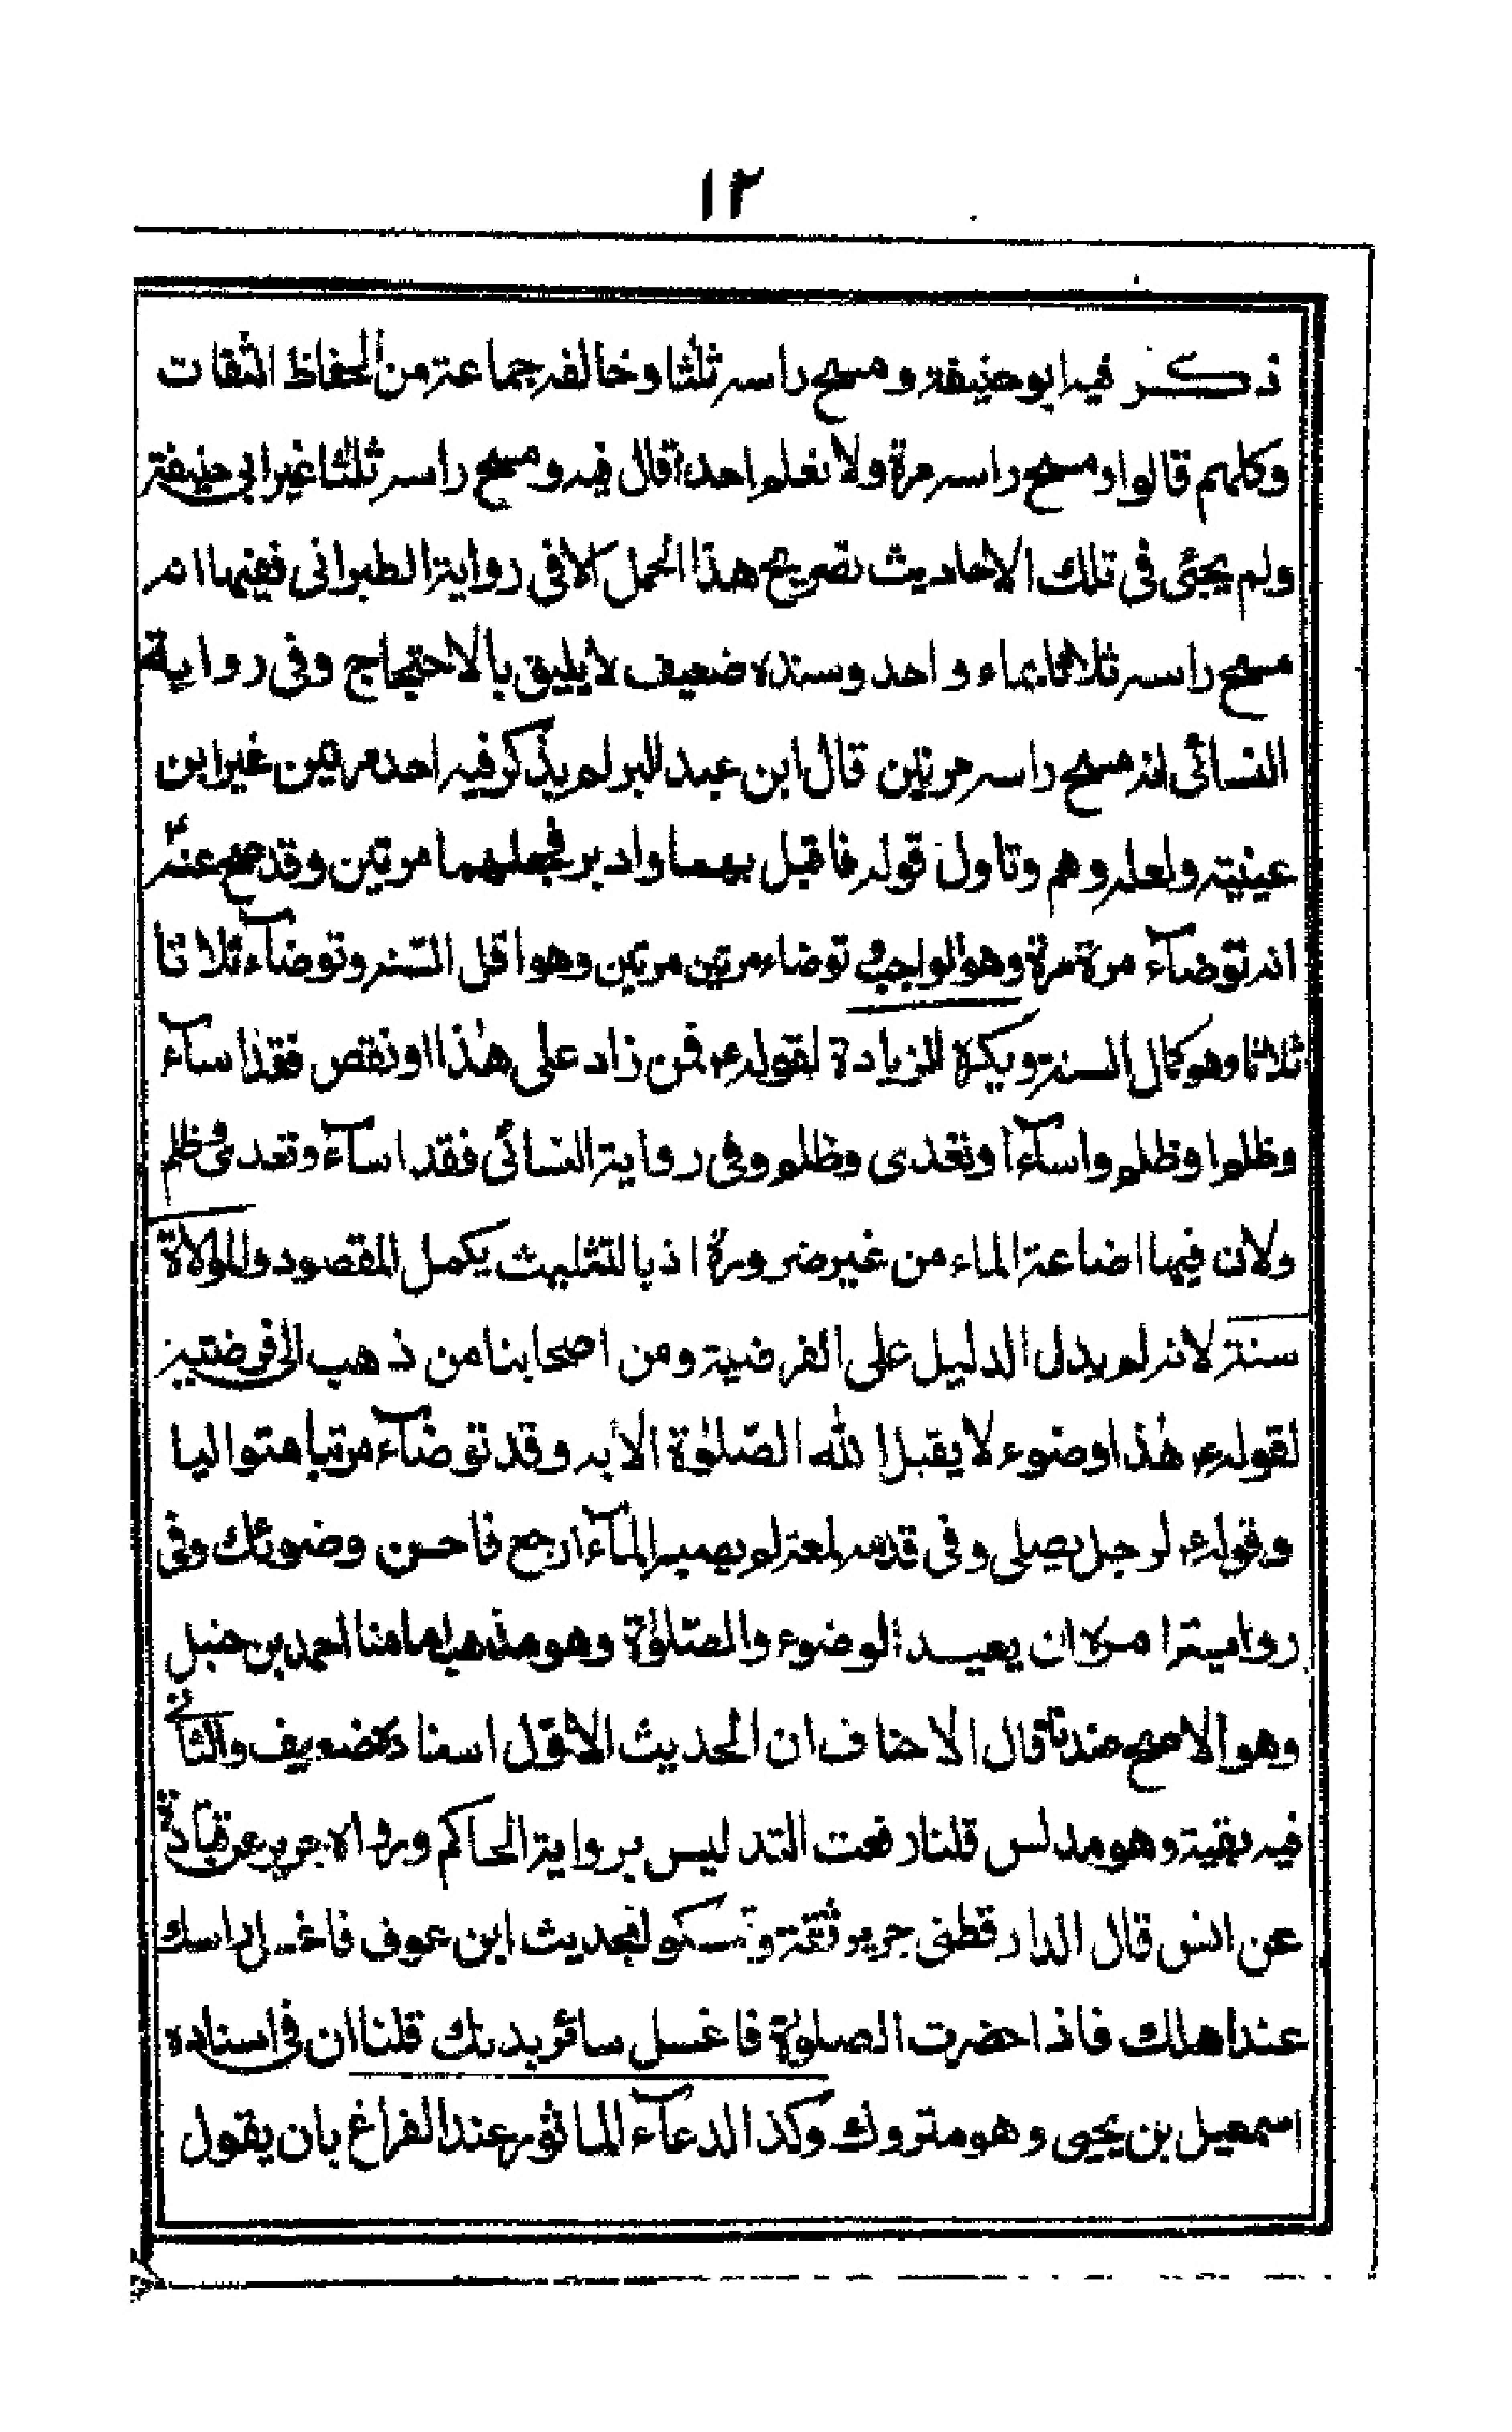 ١٢
ذكر فيه ابو حنيفة ومسح راسه ثلثا وخالفه جماعة من الحفاظ الثقات
وكلهم قالوا ومسح راسه مرة ولا نعلم احدا قال فيه ومسح راسه ثلثا غير ابي حنيفة
ولم يجئ في تلك الاحاديث تصريح هذا الحمل الا في رواية الطبراني ففيها انه
مسح راسه ثلاثا بماء واحد وسنده ضعيف لا يليق بالاحتجاج وفي رواية
النسائى انه مسح راسه مرتين قال ابن عبد البر لم يذكر فيه احد مرتين غير ابن
عيينة ولعله وهم وتاول قوله فاقبل بهما وادبر فجعلهما مرتين وقد صح عنه
انه توضآء مرة مرة وهو الواجب و توضاء مرتين مرتين وهو اقل السنة وتوضآء ثلاثا
ثلاثا وهو كمال السنة ويكره الزيادة لقوله ع فمن زاد على هذا او نقص فقد اسآء
وظلم او ظلم واسآء او تعدى وظلم وفي رواية النسائى فقد اسآء وتعدى وظلم
ولان فيها اضاعة الماء من غير ضرورة اذ بالتثليث يكمل المقصود والمولاة
سنة لانه لم يدل الدليل على الفرضية ومن اصحابنا من ذهب الى فرضتيه
لقوله ع هذا وضوء لا يقبل الله الصلوة الا به وقد توضآء مرتبا متواليا
وقوله ع لرجل يصلي وفي قدمه لمعة لم يصبها المآء ارجع فاحسن وضوءك وفي
رواية امره ان يعيد الوضوء والصلوة وهو مذهب امامنا احمد بن حنبل
وهو الاصح عندنا قال الاحناف ان الحديث الاول اسناده ضعيف والثاني
فيه بقية وهو مدلس قلنا رفعت التدليس برواية الحاكم ورواه جرير عن قتادة
عن انس قال الدارقطني جرير ثقة وتمسكوا بحديث ابن عوف فاغسل راسك
عند اهلك فاذا حضرت الصلوة فاغسل سائر بدنك قلنا ان في اسناده
اسمعيل بن يحيى وهو متروك وكذا الدعآء الماثور عند الفراغ بان يقول